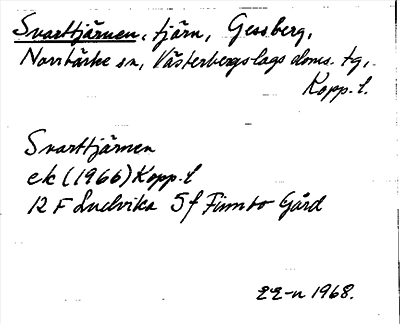 Svarttjärnen, tjärn, Gessberg,
Norrbärke sn, Västerbergslags doms. tg,
Kopp. l.
Svarttjärnen
ek (1966) Kopp. l
12 F Ludvika 5 f Finnbo Gård
1968.